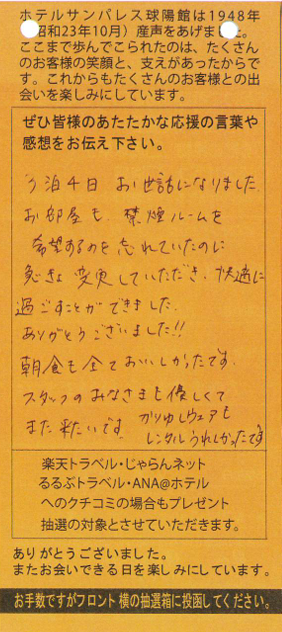 ホテルサンパレス球陽館は1948年
昭和23年10月）産声をあげました。
ここまで歩んでこられたのは、たくさん
のお客様の笑顔と、支えがあったからで
す。これからもたくさんのお客様との出
会いを楽しみにしています。
ぜひ皆様のあたたかな応援の言葉や
感想をお伝え下さい。
3泊4日 お世話になりました。
お部屋も、禁煙ルームを
希望するのを忘れていたのに
急きょ 変更していただき、快適に
過ごすことができました。
ありがとうございました!!
朝食も全ておいしかったです。
スタッフのみなさまも優しくて
また来たいです。 かりゆしウェアも
レンタルうれしかったです
楽天トラベル・じゃらんネット
るるぶトラベル・ANA@ホテル
へのクチコミの場合もプレゼント
抽選の対象とさせていただきます。
ありがとうございました。
またお会いできる日を楽しみにしています。
お手数ですがフロント 横の抽選箱に投函してください。